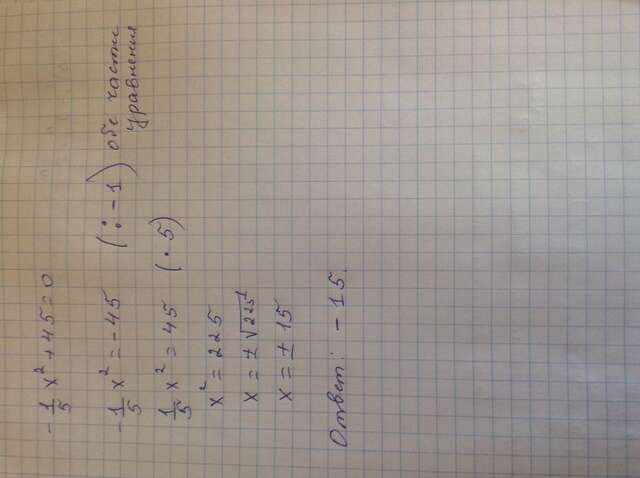 -1/5 x² + 45 = 0
-1/5 x² = -45 (: -1) обе части уравнения
1/5 x² = 45 (· 5)
x² = 225
x = ± √225
x = ± 15
Ответ: -15.